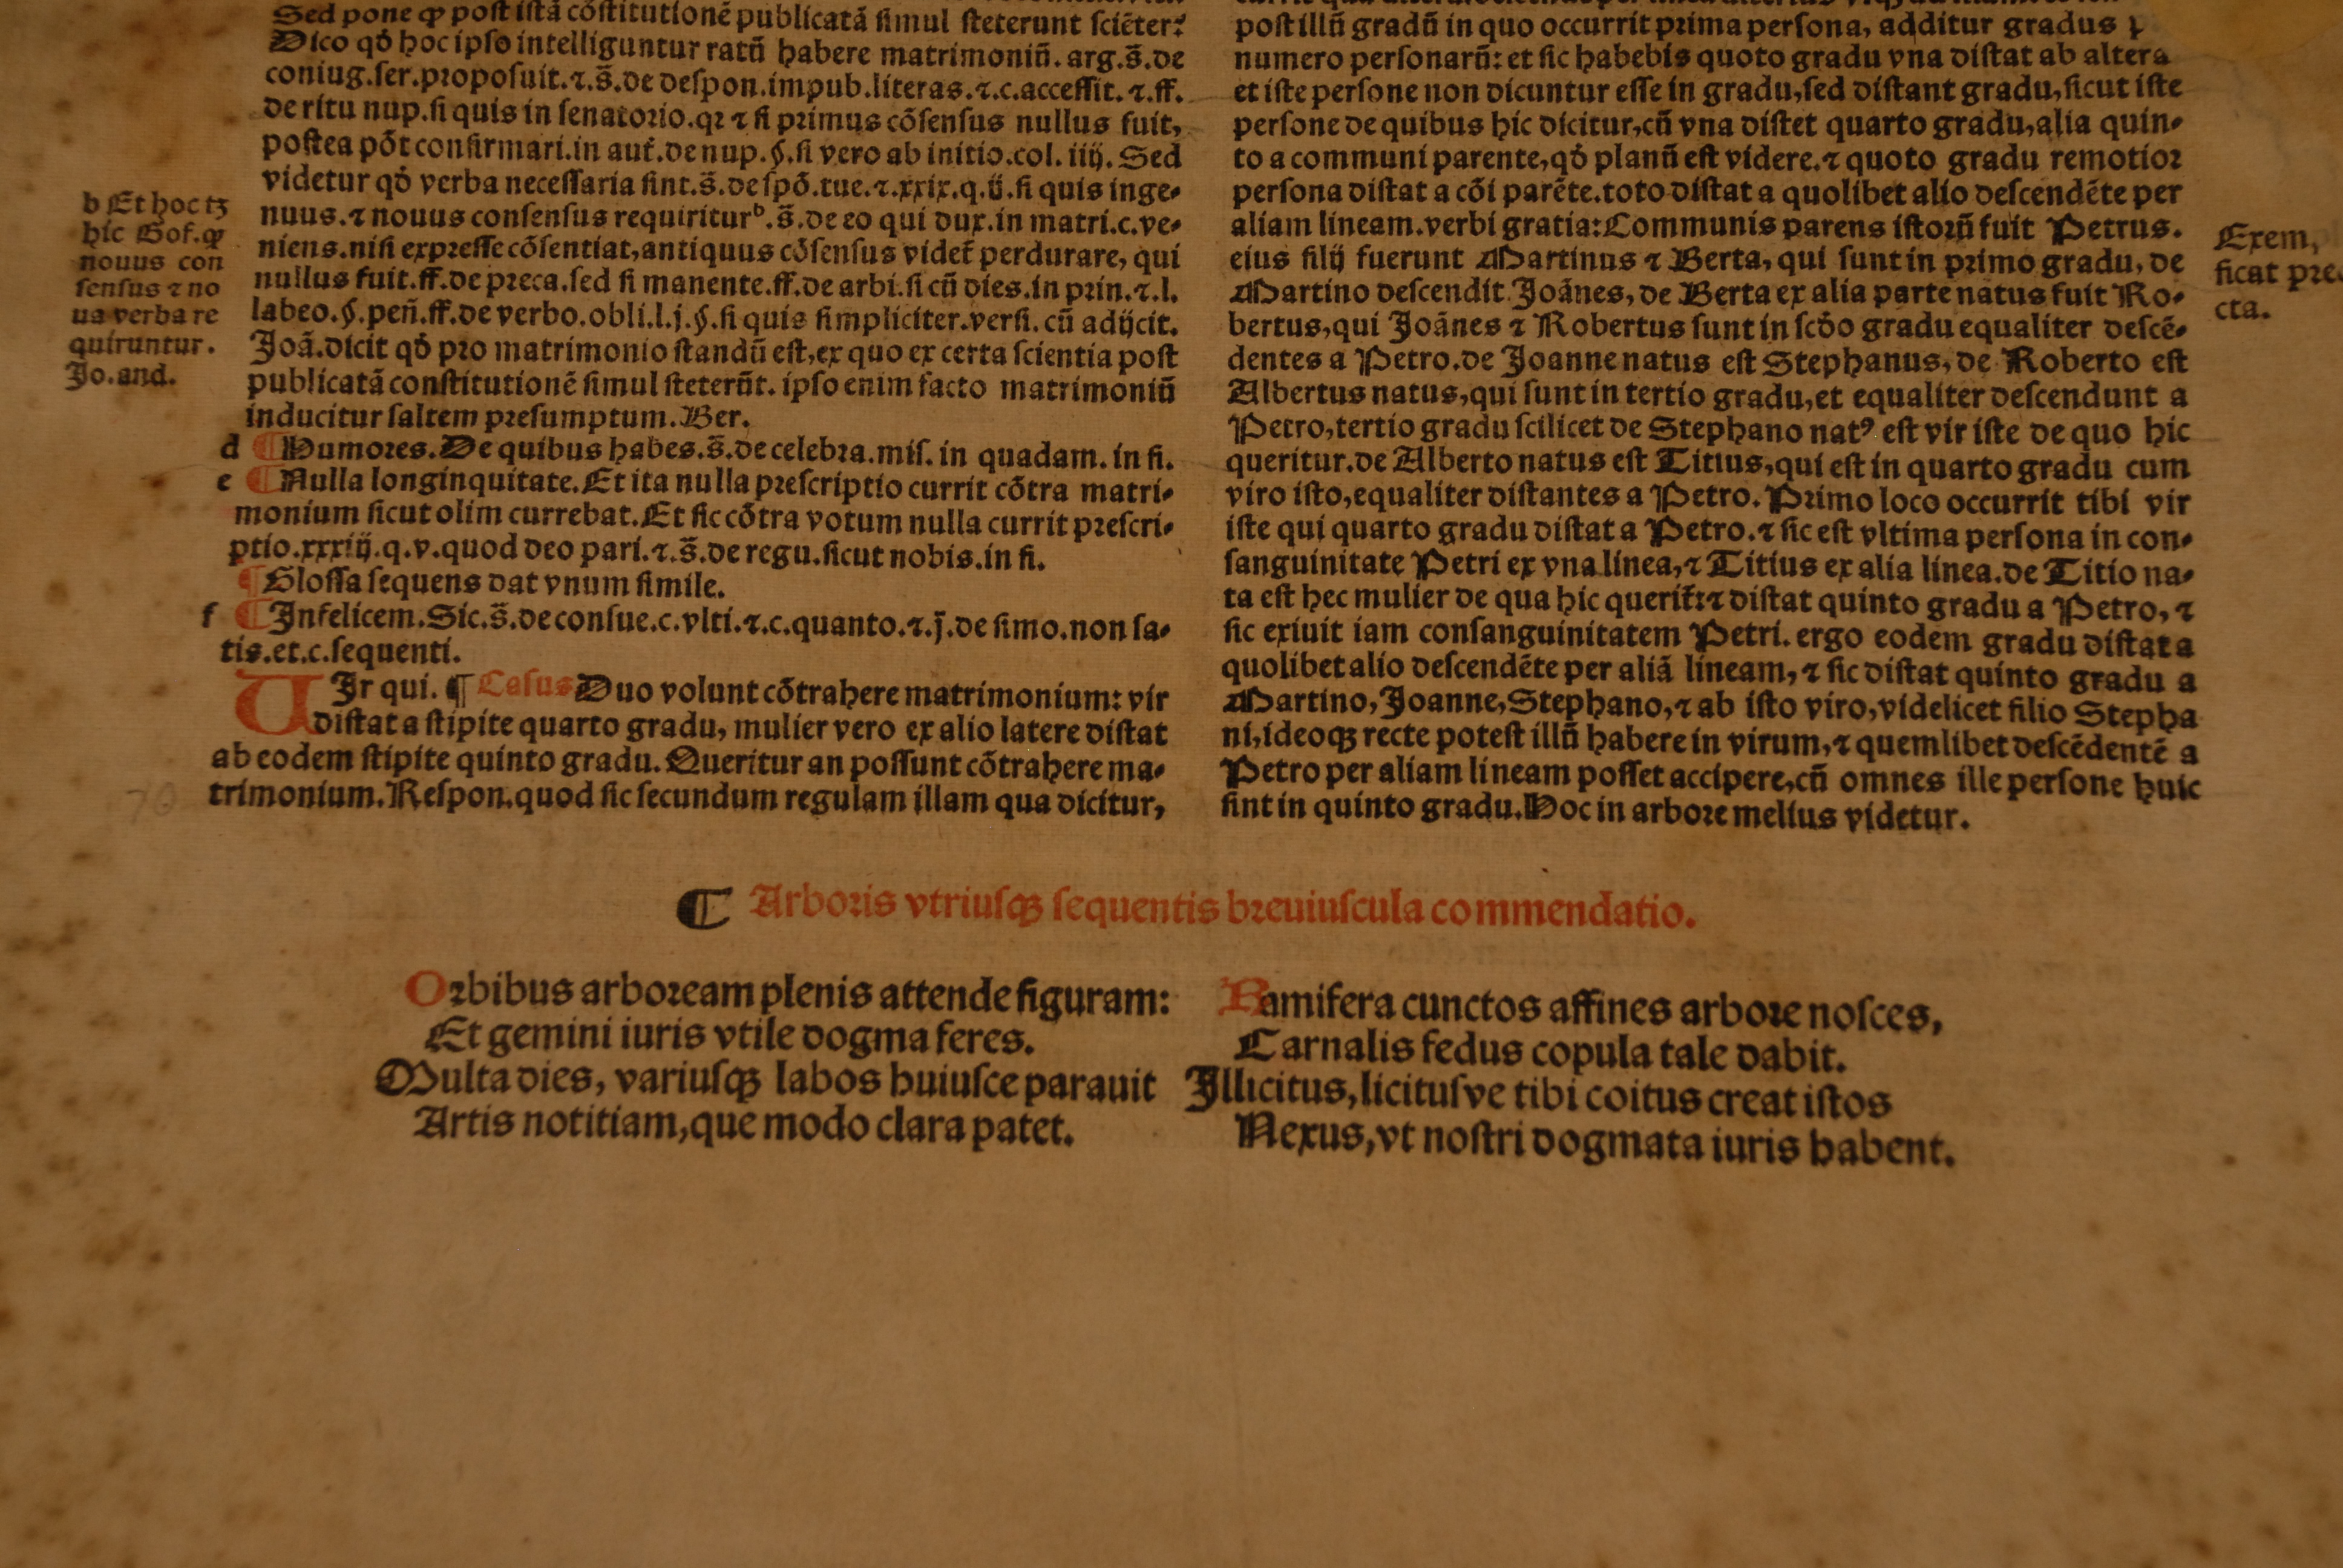 Sed pone ꝙ post istā cōstitutionē publicatā simul steterunt sciēter:
Dico qȯ hoc ipso intelliguntur ratū habere matrimoniū. arg.s̄.de
coniug.ser.proposuit.⁊.s̄.de despon.impub.literas.⁊.c.accessit.⁊.ff.
de ritu nup.si quis in senatorio.qꝛ ⁊ si primus cōsensus nullus fuit,
postea pōt confirmari.in aut̄.de nup.§.si vero ab initio.col. iiij. Sed
videtur qȯ verba necessaria sint.s̄.de spō.tue.⁊.xxix.q.ij.si quis inge-
nuus.⁊ nouus consensus requiriturᵇ.s̄.de eo qui dux.in matri.c.ve-
niens.nisi expresse cōsentiat,antiquus cōsensus videt̄ perdurare, qui
nullus fuit.ff.de preca.sed si manente.ff.de arbi.si cū dies.in prin.⁊.l.
labeo.§.peñ.ff.de verbo.obli.l.j.§.si quis simpliciter.versi. cū adijcit.
Joā.dicit qȯ pro matrimonio standū est,ex quo ex certa scientia post
publicatā constitutionē simul steterūt. ipso enim facto matrimoniū
inducitur saltem presumptum. Ber.
b Et hoc tꝫ
hic Gof.ꝙ
nouus con
sensus ⁊ no
ua verba re
quiruntur.
Jo.and.
d ¶ Humores. De quibus habes.s̄.de celebra.mis. in quadam. in fi.
e ¶ Nulla longinquitate. Et ita nulla prescriptio currit cōtra matri-
monium sicut olim currebat. Et sic cōtra votum nulla currit prescri-
ptio.xxxiij.q.v.quod deo pari.⁊.s̄.de regu.sicut nobis.in fi.
¶ Glossa sequens dat vnum simile.
f ¶ Infelicem. Sic.s̄.de consue.c.vlti.⁊.c.quanto.⁊.j̄.de simo.non sa-
tis.et.c.sequenti.
VIr qui. ¶ Casus Duo volunt cōtrahere matrimonium: vir
distat a stipite quarto gradu, mulier vero ex alio latere distat
ab eodem stipite quinto gradu. Queritur an possunt cōtrahere ma-
trimonium. Respon.quod sic secundum regulam illam qua dicitur,
post illū gradū in quo occurrit prima persona, additur gradus
numero personarū: et sic habebis quoto gradu vna distat ab altera
et iste persone non dicuntur esse in gradu,sed distant gradu,sicut iste
persone de quibus hic dicitur,cū vna distet quarto gradu,alia quin-
to a communi parente,qȯ planū est videre.⁊ quoto gradu remotior
persona distat a cōi parēte.toto distat a quolibet alio descendēte per
aliam lineam.verbi gratia: Communis parens istorū fuit Petrus.
eius filij fuerunt Martinus ⁊ Berta, qui sunt in primo gradu, de
Martino descendit Joānes, de Berta ex alia parte natus fuit Ro-
bertus,qui Joānes ⁊ Robertus sunt in scȯo gradu equaliter descē-
dentes a Petro.de Joanne natus est Stephanus, de Roberto est
Albertus natus,qui sunt in tertio gradu,et equaliter descendunt a
Petro,tertio gradu scilicet de Stephano natꝰ est vir iste de quo hic
queritur.de Alberto natus est Titius,qui est in quarto gradu cum
viro isto,equaliter distantes a Petro. Primo loco occurrit tibi vir
iste qui quarto gradu distat a Petro.⁊ sic est vltima persona in con-
sanguinitate Petri ex vna linea,⁊ Titius ex alia linea.de Titio na-
ta est hec mulier de qua hic querit̄:⁊ distat quinto gradu a Petro, ⁊
sic exiuit iam consanguinitatem Petri. ergo eodem gradu distat a
quolibet alio descendēte per aliā lineam, ⁊ sic distat quinto gradu a
Martino, Joanne, Stephano,⁊ ab isto viro,videlicet filio Stepha
ni,ideoqꝫ recte potest illū habere in virum,⁊ quemlibet descēdentē a
Petro per aliam lineam posset accipere,cū omnes ille persone huic
sint in quinto gradu. Hoc in arbore melius videtur.
Exem,
ficat pre
cta.
¶ Arboris vtriusqꝫ sequentis breuiuscula commendatio.
Orbibus arboream plenis attende figuram:
Et gemini iuris vtile dogma feres.
Multa dies, variusqꝫ labos huiusce parauit
Artis notitiam,que modo clara patet.
Ramifera cunctos affines arbore nosces,
Carnalis fedus copula tale dabit.
Illicitus,licitusve tibi coitus creat istos
Nexus,vt nostri dogmata iuris habent.